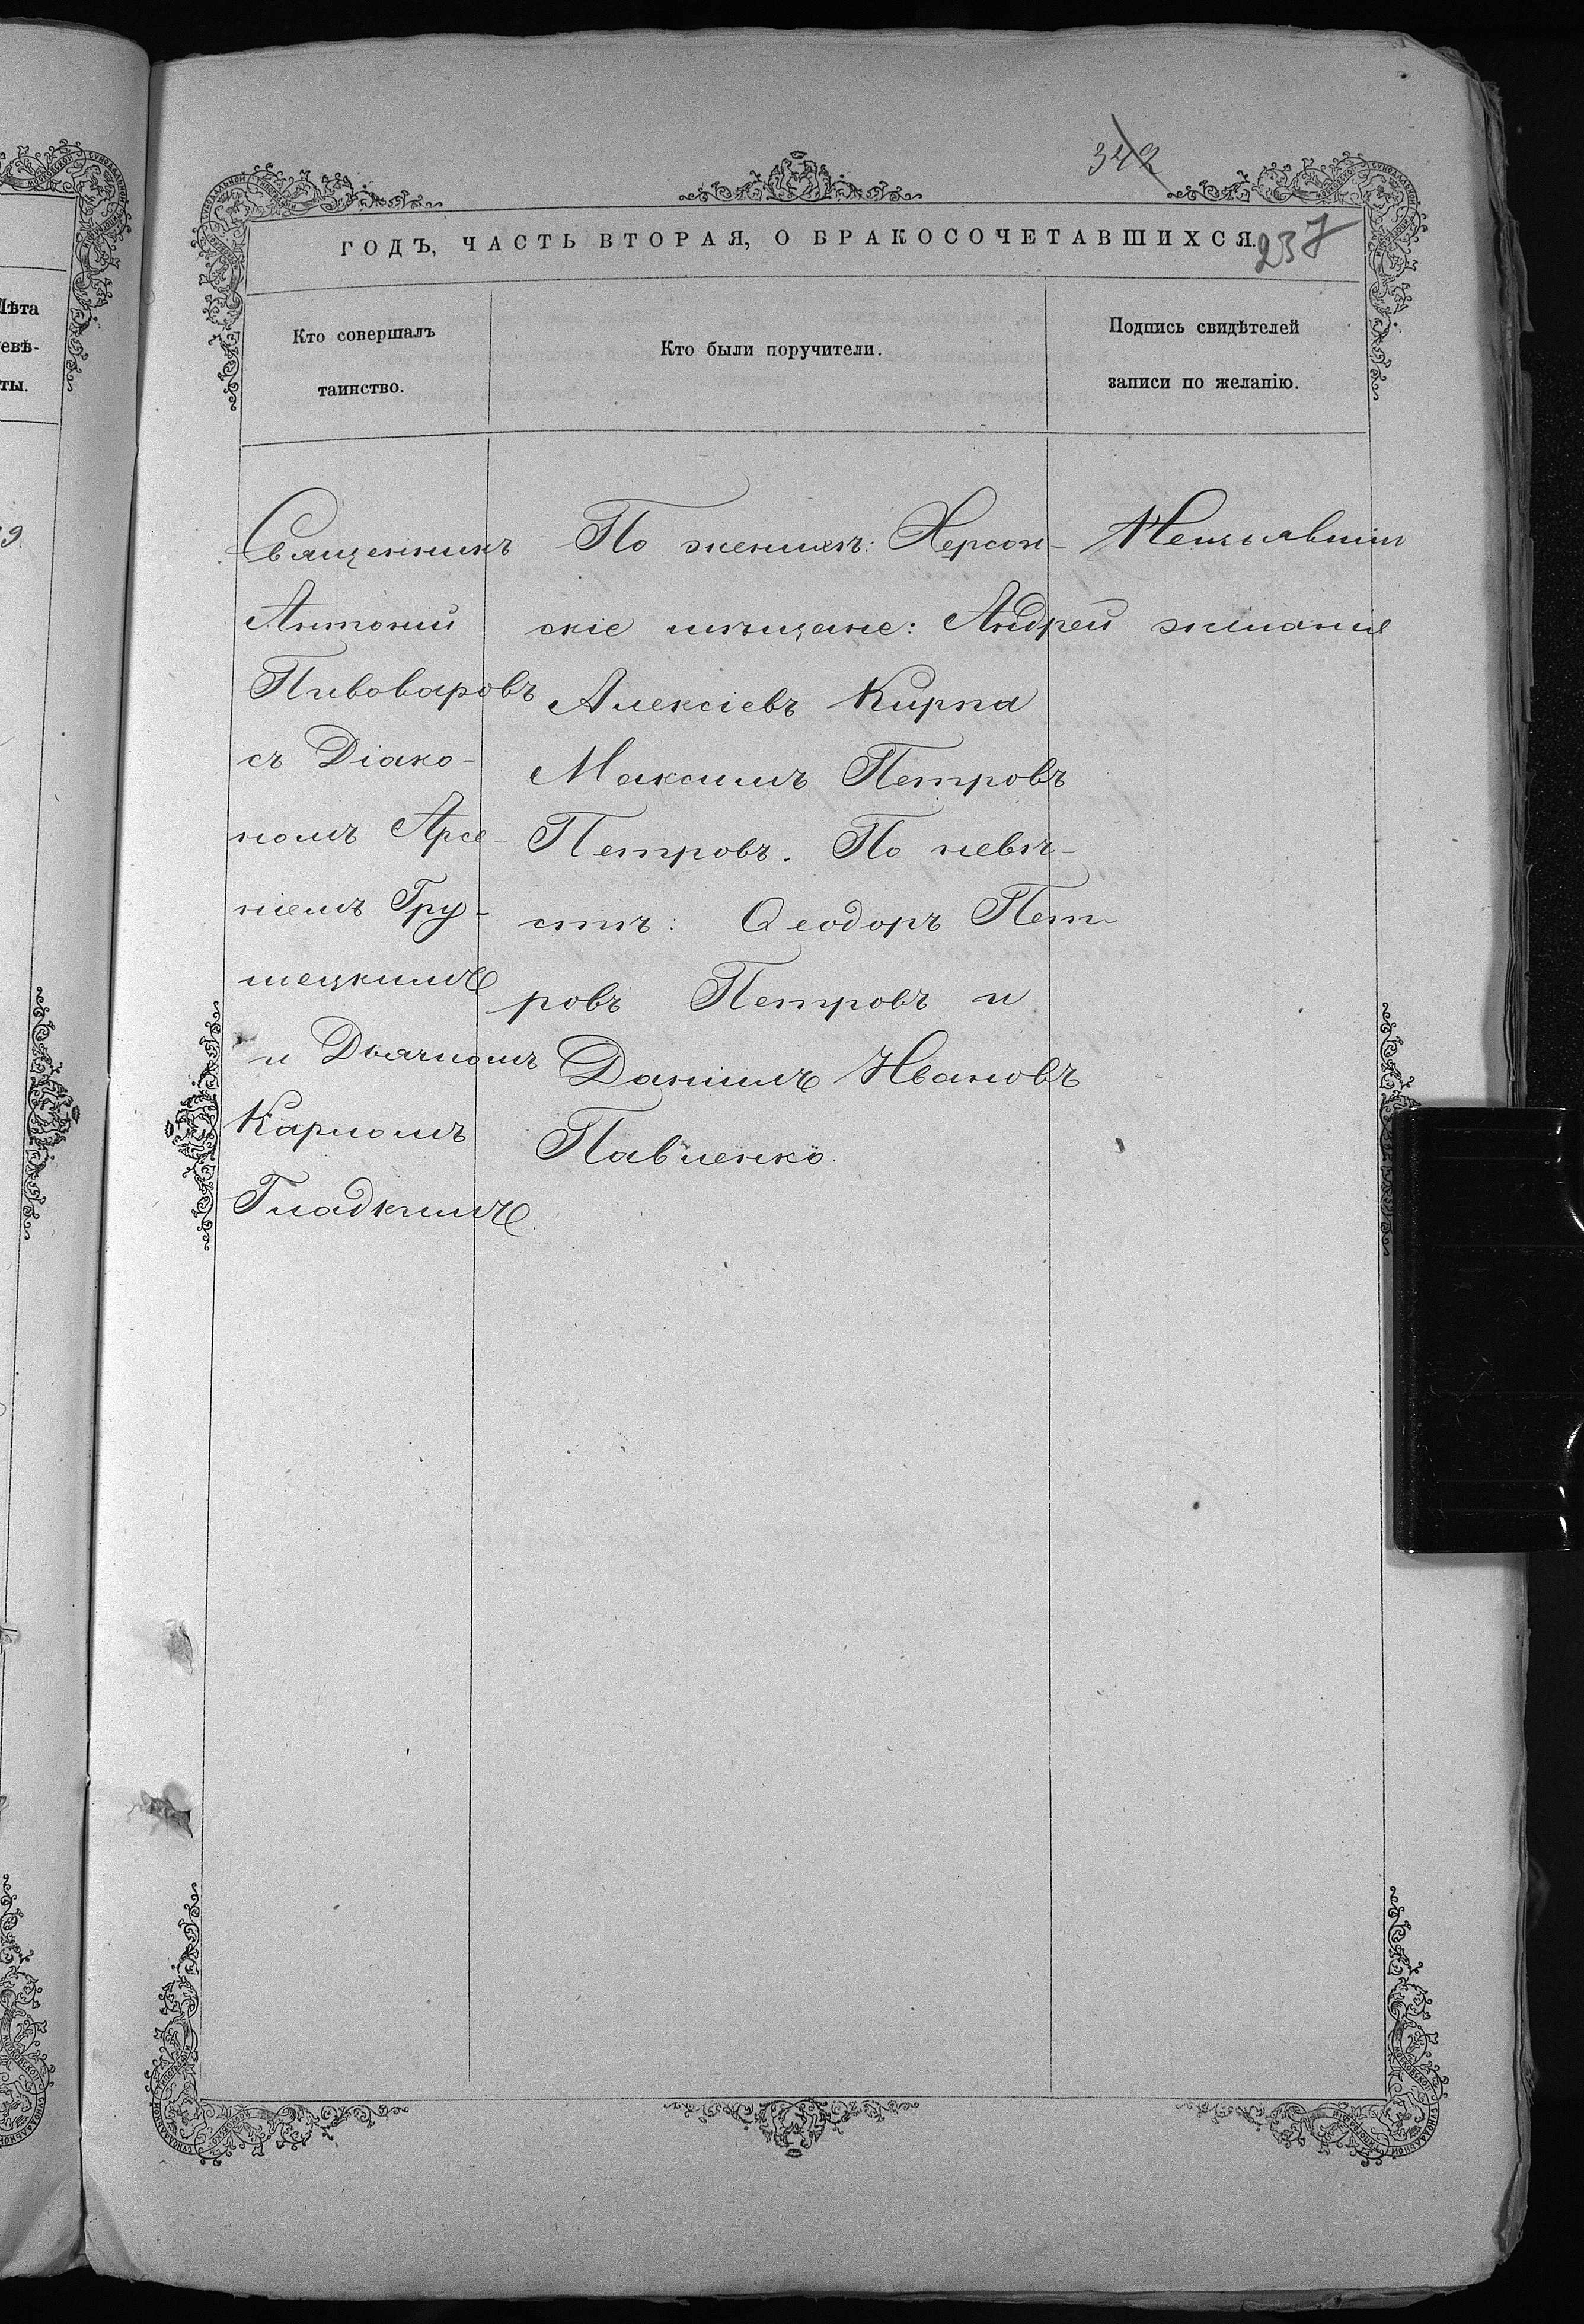 342
ГОДЪ, ЧАСТЬ ВТОРАЯ, О БРАКОСОЧЕТАВШИХСЯ.
237
Лѣта
невѣ-
ты.
Кто совершалъ
таинство.
Кто были поручители.
Подпись свидѣтелей
записи по желанію.
Священникъ
Антоній
Пивоваровъ
съ Діако-
номъ Арсе-
ніемъ Гру-
шецкимъ
и Дьячкомъ
Карпомъ
Гладкимъ.
По женихѣ: Херсон-
скіе мѣщане: Андрей
Алексіевъ Кирпа
Максимъ Петровъ
Петровъ. По невѣ-
стѣ: Ѳеодоръ Пет
ровъ Петровъ и
Даніилъ Ивановъ
Павленко.
желанія